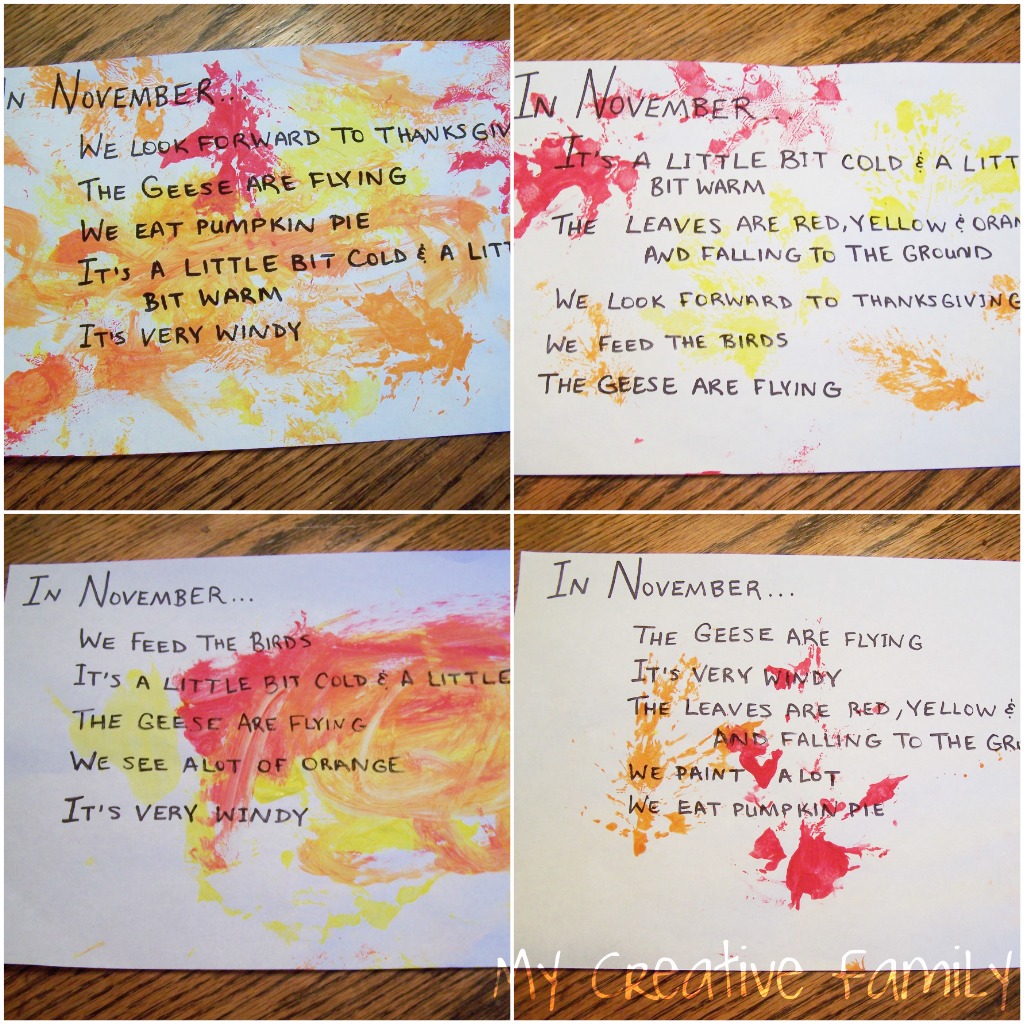 In November...
We look forward to Thanksgiv
The geese are flying
We eat pumpkin pie
It's a little bit cold & a litt
bit warm
It's very windy
In November...
It's a little bit cold & a litt
bit warm
The leaves are red, yellow & oran
and falling to the ground
We look forward to Thanksgiving
We feed the birds
The geese are flying
In November...
We feed the birds
It's a little bit cold & a little
The geese are flying
We see alot of orange
It's very windy
In November...
The geese are flying
It's very windy
The leaves are red, yellow &
and falling to the gr
We paint a lot
We eat pumpkin pie
My Creative Family